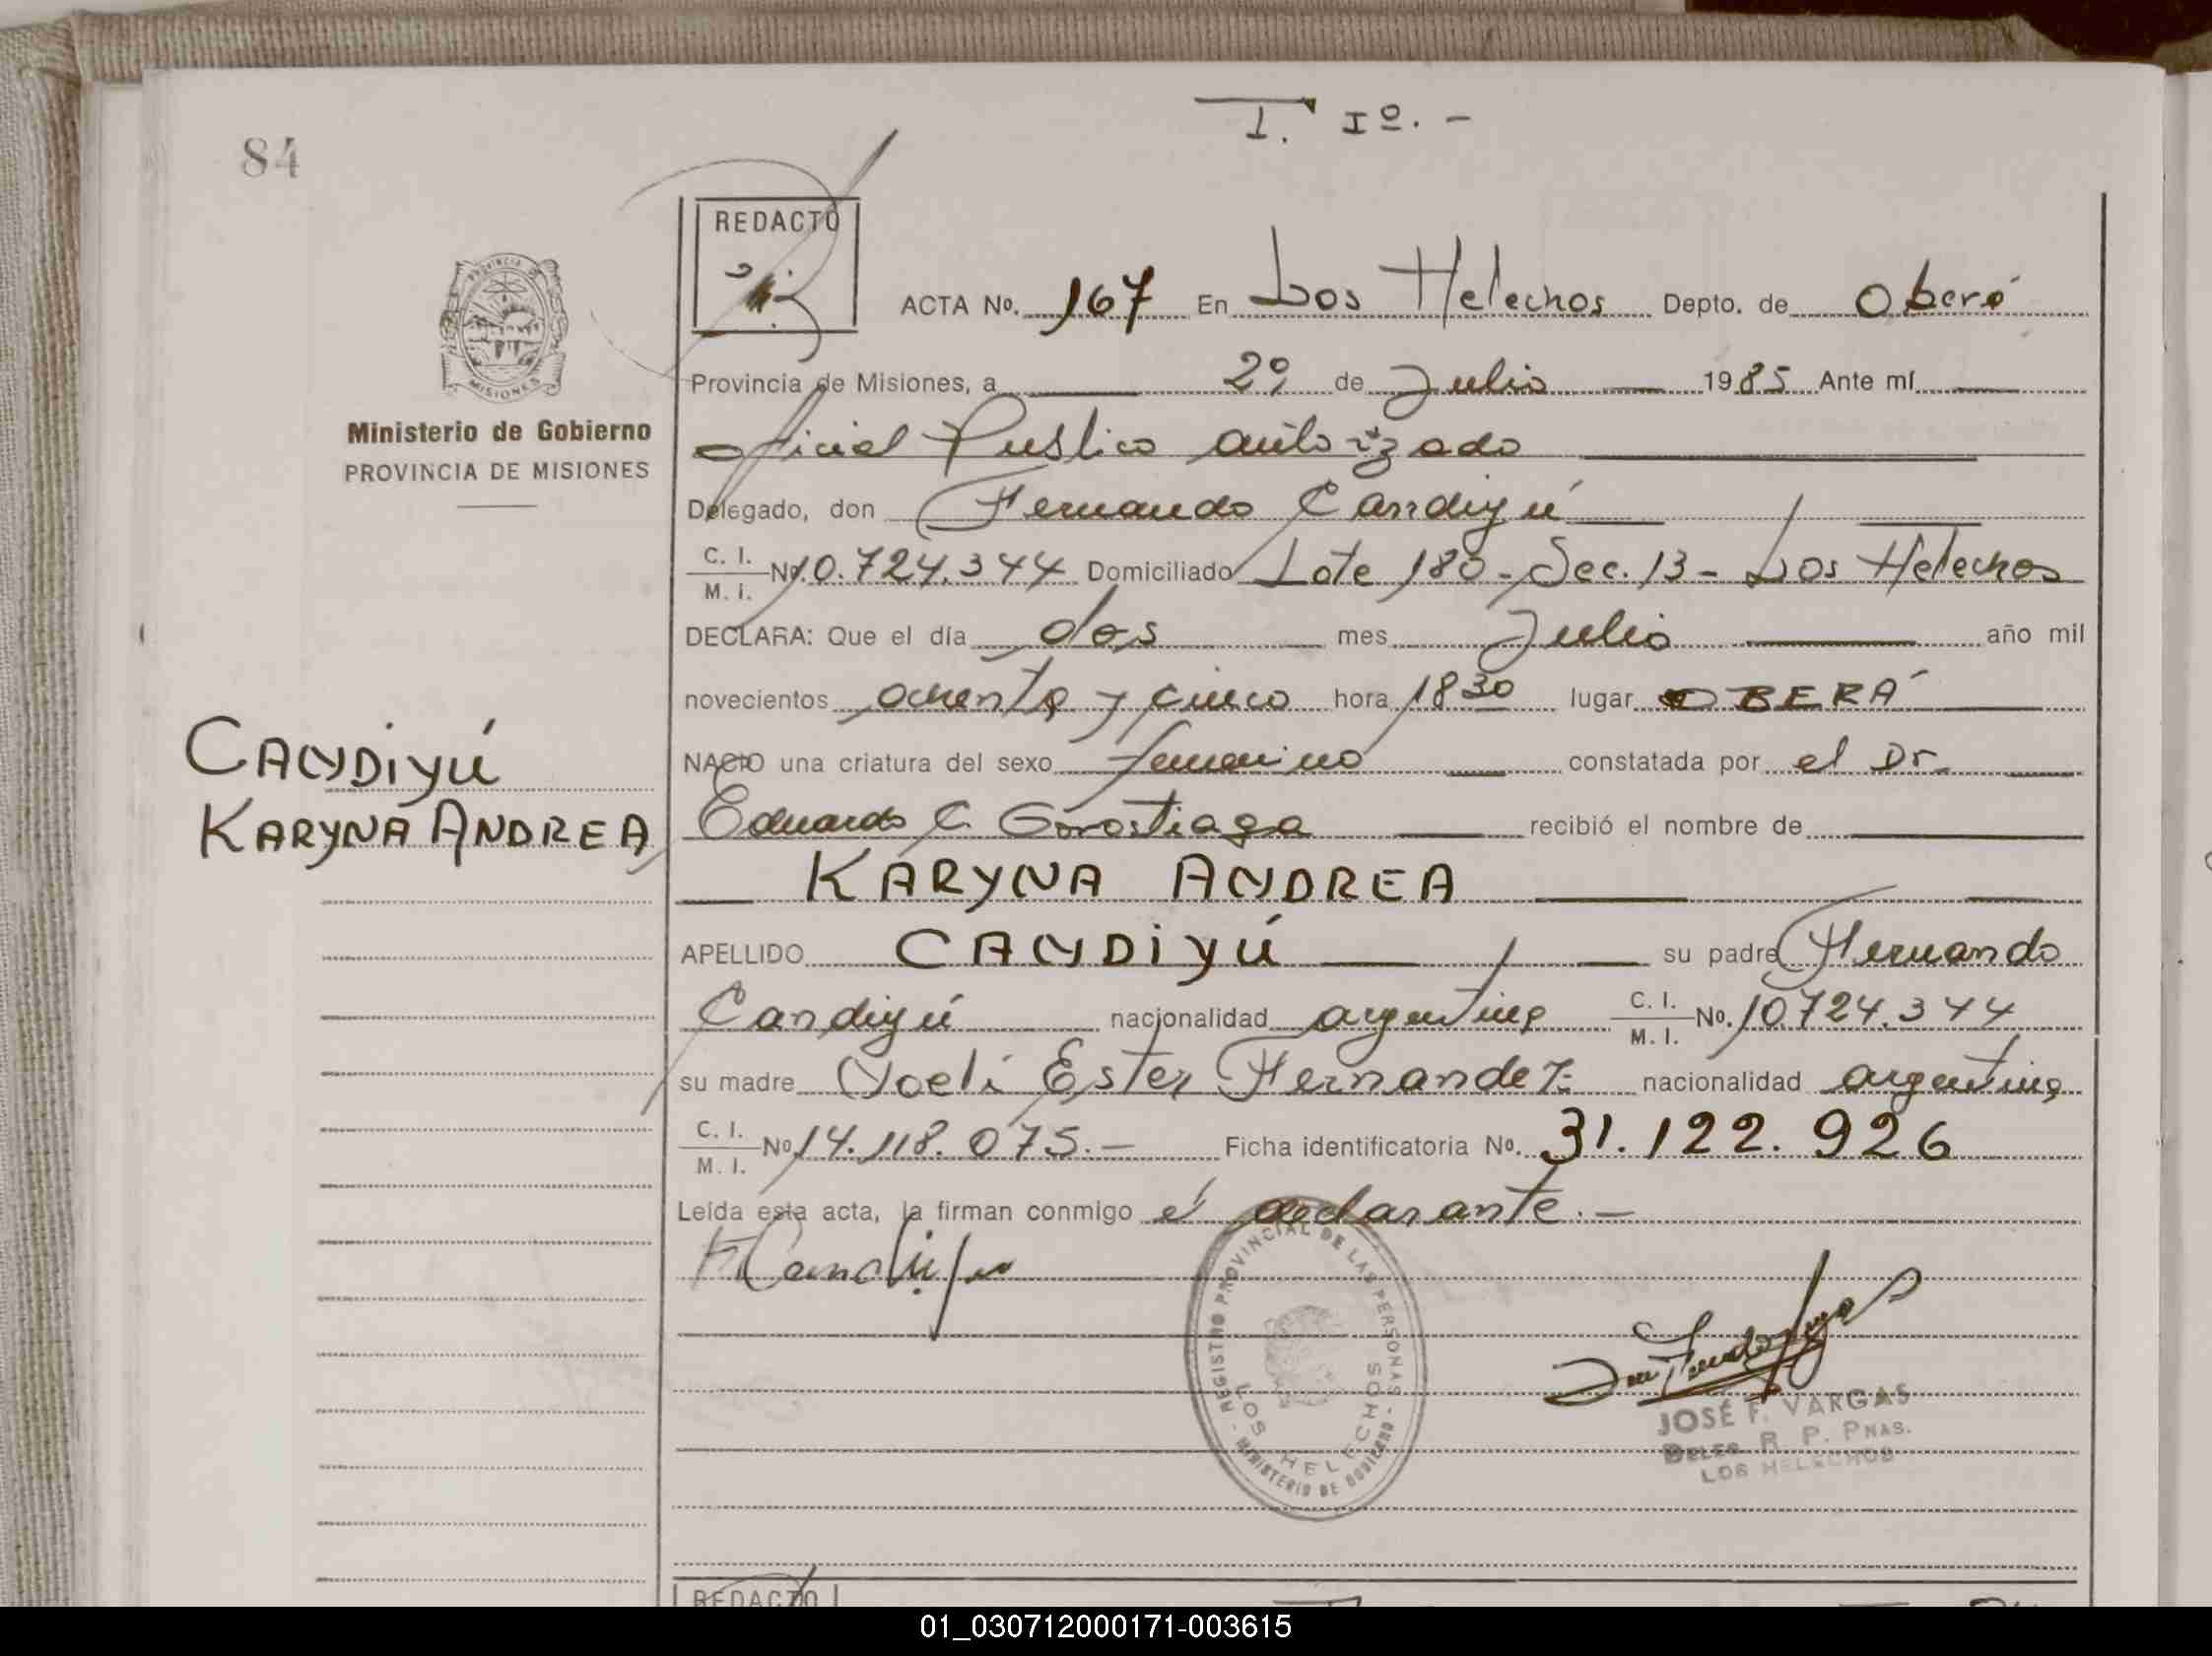 T. Iº. -
84
REDACTO
ACTA Nº. 167 En Los Helechos Depto. de Oberá
Provincia de Misiones, a 29 de Julio 1985 Ante mí
Ministerio de Gobierno
PROVINCIA DE MISIONES
oficial Publico autorizado
Delegado, don Fernando Candiyú
C. I. M. I. Nº 10.724.344 Domiciliado Lote 180 - Sec. 13 - Los Helechos
DECLARA: Que el día dos mes Julio año mil
novecientos ochenta y cinco hora 18 30 lugar OBERÁ
CANDIYÚ
KARYNA ANDREA
NACIO una criatura del sexo femenino constatada por el Dr.
Eduardo C. Gorostiaga recibió el nombre de
KARYNA ANDREA
APELLIDO CANDIYÚ su padre Fernando
Candiyú nacionalidad argentina C. I. M. I. No. 10.724.344
su madre Noelí Ester Fernandez nacionalidad argentina
C. I. M. I. Nº 14.118.075.- Ficha identificatoria No. 31.122.926
Leída esta acta, la firman conmigo el declarante.-
F Candiyu
REGISTRO PROVINCIAL DE LAS PERSONAS - MINISTERIO DE GOBIERNO -
LOS HELECHOS
PROVINCIA DE MISIONES
JOSÉ F. VARGAS
DELEG. R. P. PNAS.
LOS HELECHOS
REDACTO
01_030712000171-003615